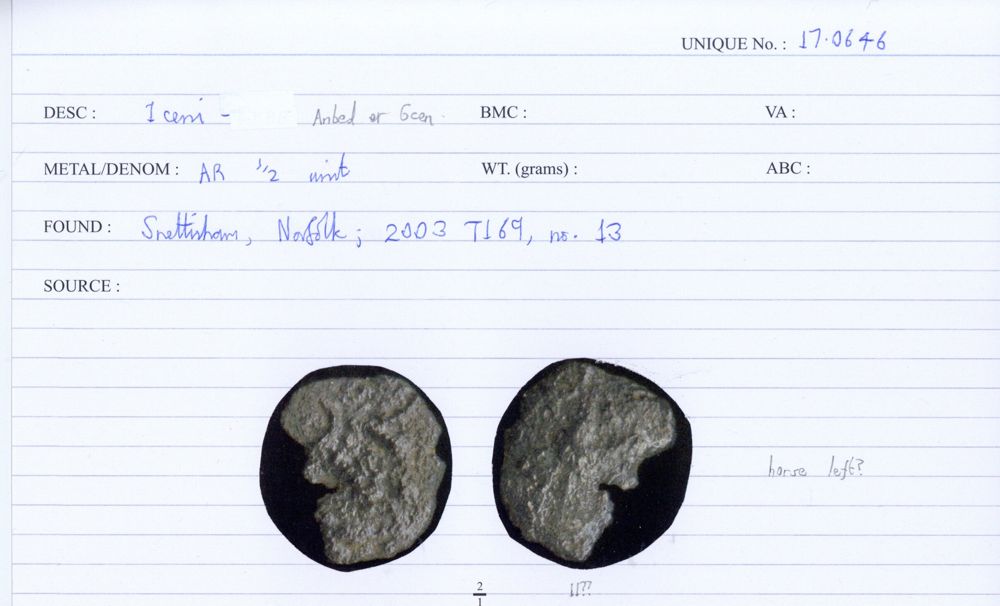 UNIQUE No. : 17.0646
DESC : Iceni - Anted or Ecen. BMC : VA :
METAL/DENOM : AR 1/2 unit WT. (grams) : ABC :
FOUND : Snettisham, Norfolk; 2003 T169, no. 13
SOURCE :
horse left?
2
1
??